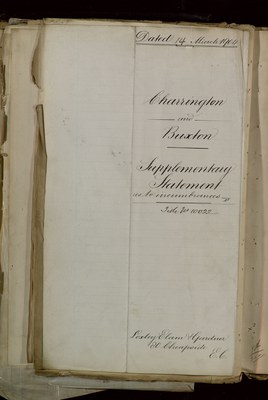 Dated 14 March 1904
Charrington
and
Buxton
Supplementary
Statement
as to incumbrances
Title No 10032
Gardner
Cheapside
E.C.